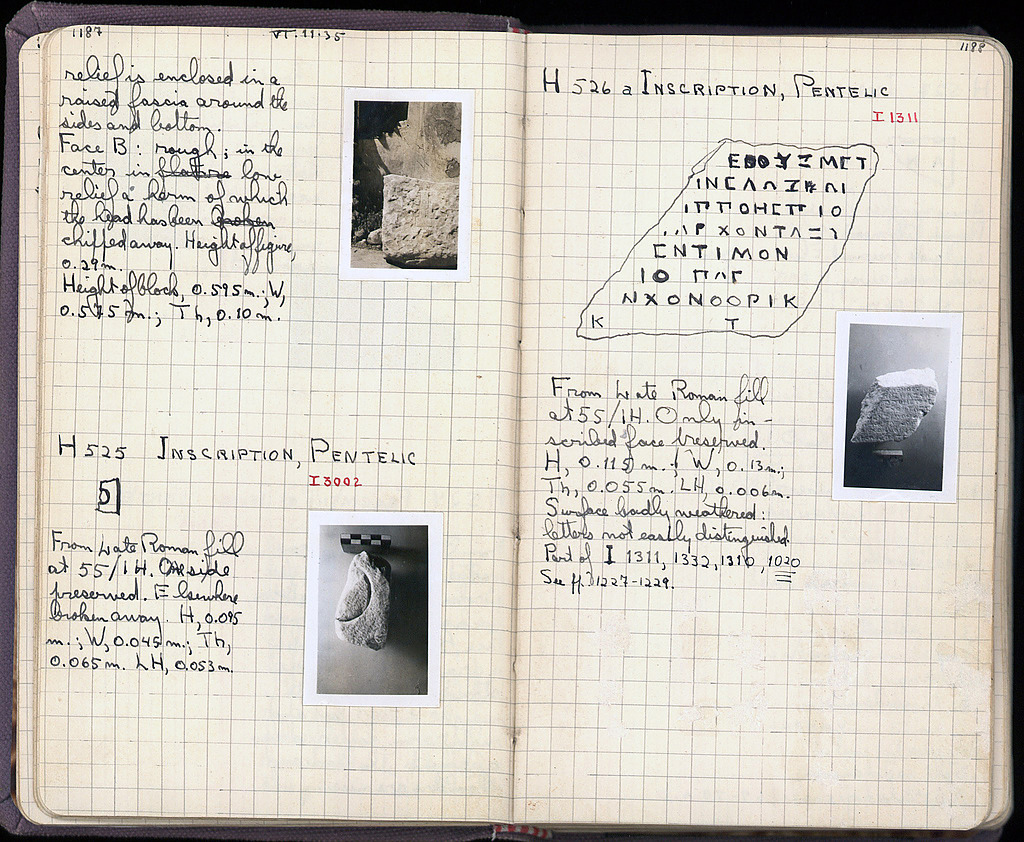 1187
VI.11.35
relief is enclosed in a
raised fascia around the
sides and bottom.
Face B: rough; in the
center in low
relief a herm of which
the head has been
chipped away. Height of figure,
0.29 m.
Height of block, 0.595 m.; W,
0.575 m.; Th, 0.10 m.
H 525 INSCRIPTION, PENTELIC
I 3002
From Late Roman fill
at 55/ΙΗ. One side
preserved. Elsewhere
broken away. H, 0.095
m.; W, 0.045 m.; Th,
0.065 m. LH, 0.053 m.
1188
H 526 a INSCRIPTION, PENTELIC
I 1311
ΕΝΤΙΜΟΝ
ΙΟ
ΝΧΟΝΟΟΡΙΚ
Κ Τ
From Late Roman fill
at 55/ΙΗ. Only in-
scribed face preserved.
H, 0.115 m.; W, 0.13 m.;
Th, 0.055 m. LH, 0.006 m.
Surface badly weathered:
letters not easily distinguished.
Part of I 1311, 1332, 1310, 1020
See ff. 1227-1229.